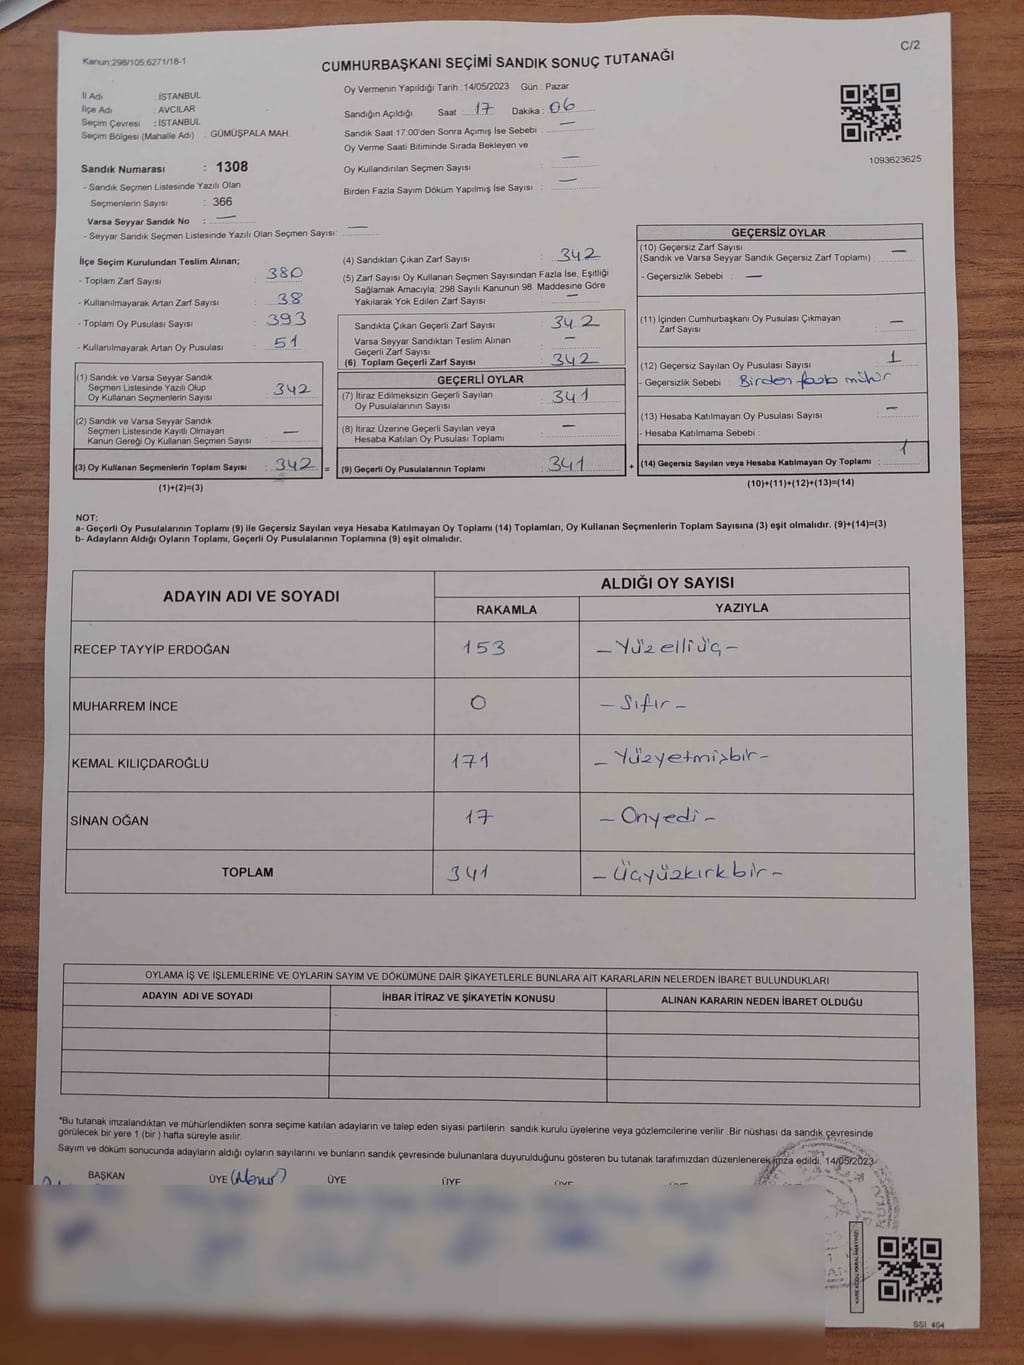 C/2
Kanun;298/105;6271/18-1
CUMHURBAŞKANI SEÇİMİ SANDIK SONUÇ TUTANAĞI
İl Adı : İSTANBUL
İlçe Adı : AVCILAR
Seçim Çevresi : İSTANBUL
Seçim Bölgesi (Mahalle Adı) : GÜMÜŞPALA MAH.
Oy Vermenin Yapıldığı Tarih : 14/05/2023 Gün : Pazar
Sandığın Açıldığı Saat : 17 Dakika : 06
Sandık Saat 17:00'den Sonra Açımış İse Sebebi : —
Oy Verme Saati Bitiminde Sırada Bekleyen ve
Oy Kullandırılan Seçmen Sayısı : —
Birden Fazla Sayım Döküm Yapılmış İse Sayısı : —
1093623625
Sandık Numarası : 1308
- Sandık Seçmen Listesinde Yazılı Olan
Seçmenlerin Sayısı : 366
Varsa Seyyar Sandık No : —
- Seyyar Sandık Seçmen Listesinde Yazılı Olan Seçmen Sayısı: —
İlçe Seçim Kurulundan Teslim Alınan;
- Toplam Zarf Sayısı : 380
- Kullanılmayarak Artan Zarf Sayısı : 38
- Toplam Oy Pusulası Sayısı : 393
- Kullanılmayarak Artan Oy Pusulası : 51
(1) Sandık ve Varsa Seyyar Sandık
Seçmen Listesinde Yazılı Olup
Oy Kullanan Seçmenlerin Sayısı : 342
(2) Sandık ve Varsa Seyyar Sandık
Seçmen Listesinde Kayıtlı Olmayan
Kanun Gereği Oy Kullanan Seçmen Sayısı : —
(3) Oy Kullanan Seçmenlerin Toplam Sayısı : 342
(1)+(2)=(3)
(4) Sandıktan Çıkan Zarf Sayısı : 342
(5) Zarf Sayısı Oy Kullanan Seçmen Sayısından Fazla İse, Eşitliği
Sağlamak Amacıyla; 298 Sayılı Kanunun 98. Maddesine Göre
Yakılarak Yok Edilen Zarf Sayısı : —
Sandıkta Çıkan Geçerli Zarf Sayısı : 342
Varsa Seyyar Sandıktan Teslim Alınan
Geçerli Zarf Sayısı : —
(6) Toplam Geçerli Zarf Sayısı : 342
GEÇERLİ OYLAR
(7) İtiraz Edilmeksizin Geçerli Sayılan
Oy Pusulalarının Sayısı : 341
(8) İtiraz Üzerine Geçerli Sayılan veya
Hesaba Katılan Oy Pusulası Toplamı : —
= (9) Geçerli Oy Pusulalarının Toplamı : 341
GEÇERSİZ OYLAR
(10) Geçersiz Zarf Sayısı
(Sandık ve Varsa Seyyar Sandık Geçersiz Zarf Toplamı) : —
- Geçersizlik Sebebi : —
(11) İçinden Cumhurbaşkanı Oy Pusulası Çıkmayan
Zarf Sayısı : —
(12) Geçersiz Sayılan Oy Pusulası Sayısı : 1
- Geçersizlik Sebebi : Birden fazla mühür
(13) Hesaba Katılmayan Oy Pusulası Sayısı : —
- Hesaba Katılmama Sebebi :
+ (14) Geçersiz Sayılan veya Hesaba Katılmayan Oy Toplamı : 1
(10)+(11)+(12)+(13)=(14)
NOT:
a- Geçerli Oy Pusulalarının Toplamı (9) ile Geçersiz Sayılan veya Hesaba Katılmayan Oy Toplamı (14) Toplamları, Oy Kullanan Seçmenlerin Toplam Sayısına (3) eşit olmalıdır. (9)+(14)=(3)
b- Adayların Aldığı Oyların Toplamı, Geçerli Oy Pusulalarının Toplamına (9) eşit olmalıdır.
ADAYIN ADI VE SOYADI ALDIĞI OY SAYISI
RAKAMLA YAZIYLA
RECEP TAYYİP ERDOĞAN 153 – Yüzelliüç –
MUHARREM İNCE 0 – Sıfır –
KEMAL KILIÇDAROĞLU 171 – Yüzyetmişbir –
SİNAN OĞAN 17 – Onyedi –
TOPLAM 341 – Üçyüzkırkbir –
OYLAMA İŞ VE İŞLEMLERİNE VE OYLARIN SAYIM VE DÖKÜMÜNE DAİR ŞİKAYETLERLE BUNLARA AİT KARARLARIN NELERDEN İBARET BULUNDUKLARI
ADAYIN ADI VE SOYADI İHBAR İTİRAZ VE ŞİKAYETİN KONUSU ALINAN KARARIN NEDEN İBARET OLDUĞU
*Bu tutanak imzalandıktan ve mühürlendikten sonra seçime katılan adayların ve talep eden siyasi partilerin sandık kurulu üyelerine veya gözlemcilerine verilir. Bir nüshası da sandık çevresinde
görülecek bir yere 1 (bir ) hafta süreyle asılır.
Sayım ve döküm sonucunda adayların aldığı oyların sayılarını ve bunların sandık çevresinde bulunanlara duyurulduğunu gösteren bu tutanak tarafımızdan düzenlenerek imza edildi. 14/05/2023
BAŞKAN ÜYE ÜYE ÜYE ÜYE ÜYE
SSI_404